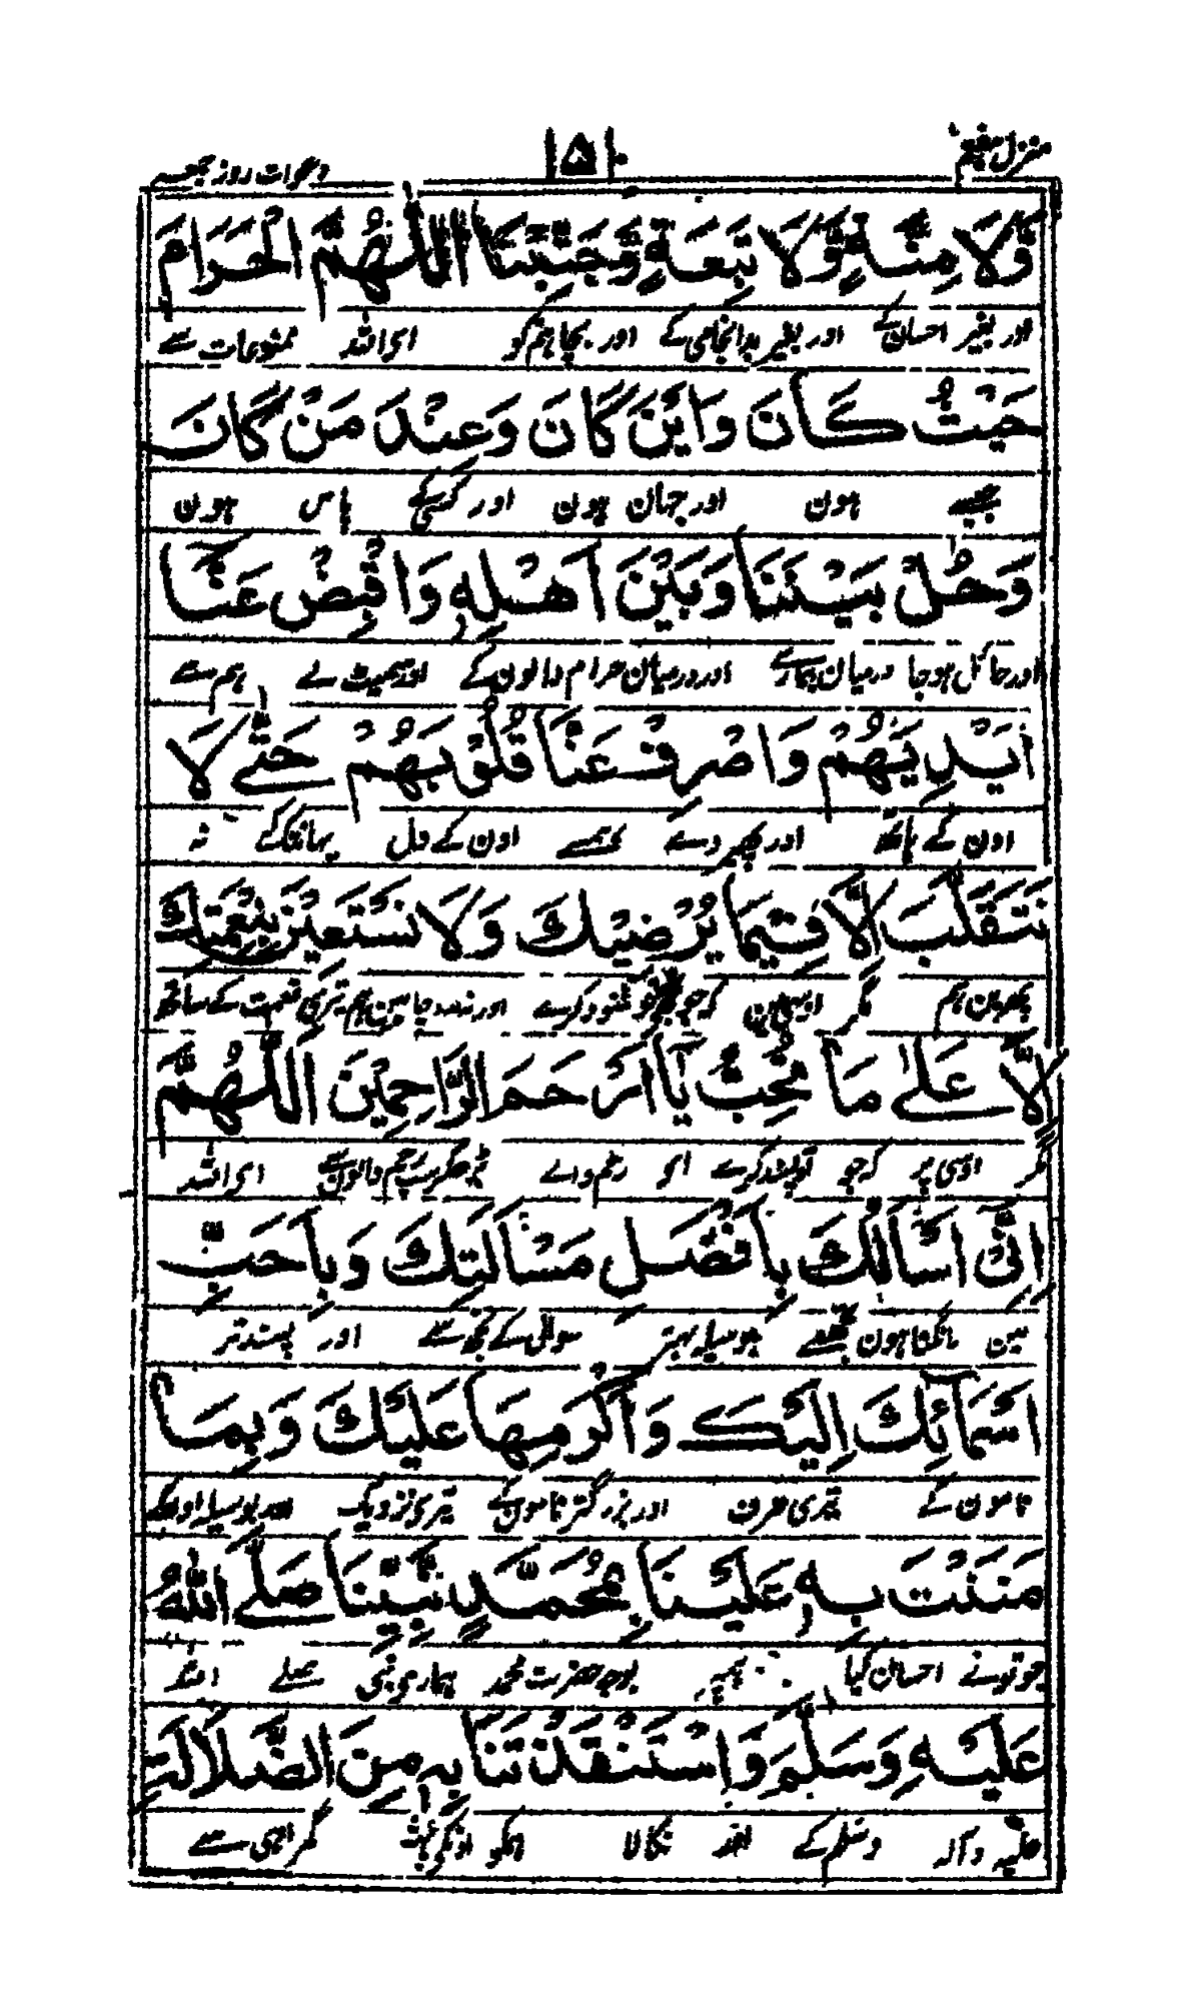 منزل ہفتم ۱۵۱ دعوات روز جمعہ
وَلَا مِنَّةٍ وَّلَا تَبِعَةٍ وَّجَنِّبْنَا اَللّٰهُمَّ الْحَرَامَ
اور بغیر احسان کے اور بغیر بدانجامی کے اور بچا ہم کو ای اللہ ممنوعات سے
حَيْثُ كَانَ وَاَيْنَ كَانَ وَعِنْدَ مَنْ كَانَ
جیسے ہون اور جہان ہون اور کسی کے پاس ہون
وَحُلْ بَيْنَنَا وَبَيْنَ اَهْلِهٖ وَاقْبِضْ عَنَّا
اور حائل ہوجا درمیان ہمارے اور درمیان حرام والون کے اور سمیٹ لے ہم سے
اَيْدِيَهُمْ وَاصْرِفْ عَنَّا قُلُوْبَهُمْ حَتّٰى لَا
اون کے ہاتھ اور پھیر دے ہمسے اون کے دل یہانتک کے نہ
نَتَقَلَّبَ اِلَّا فِيْمَا يُرْضِيْكَ وَلَا نَسْتَعِيْنَ بِنِعْمَتِكَ
پھرین ہم مگر اوسمین کہ جو خوشنود کرے اور نہ مدد چاہین ہم تیری نعمت کے ساتھ
اِلَّا عَلٰى مَا تُحِبُّ يَا اَرْحَمَ الرَّاحِمِيْنَ اَللّٰهُمَّ
مگر اوسی پر کہ جو تو پسند کرے ای رحم والے بڑھکر سب رحم والون سے ای اللہ
اِنِّىْ اَسْاَلُكَ بِاَفْضَلِ مَسْاَلَتِكَ وَبِاَحَبِّ
مین مانگتا ہون تجھسے بوسیلہ بہتر سوال کے تجھ سے اور پسند تر
اَسْمَآئِكَ اِلَيْكَ وَاَكْرَمِهَا عَلَيْكَ وَبِمَا
نامون کے تیری طرف اور بزرگتر نامون کے تیری نزدیک اور بوسیلہ اوسکے
مَنَنْتَ بِهٖ عَلَيْنَا بِمُحَمَّدٍ نَّبِيِّنَا صَلَّى اللّٰهُ
جو تو نے احسان کیا ہمپر بوجہ حضرت محمد ہماری نبی صلے اللہ
عَلَيْهِ وَسَلَّمَ وَاسْتَنْقَذْتَنَا بِهٖ مِنَ الضَّلَالَةِ
علیہ وآلہ وسلم کے اور نکالا ہمکو اونکی گمراہی سے